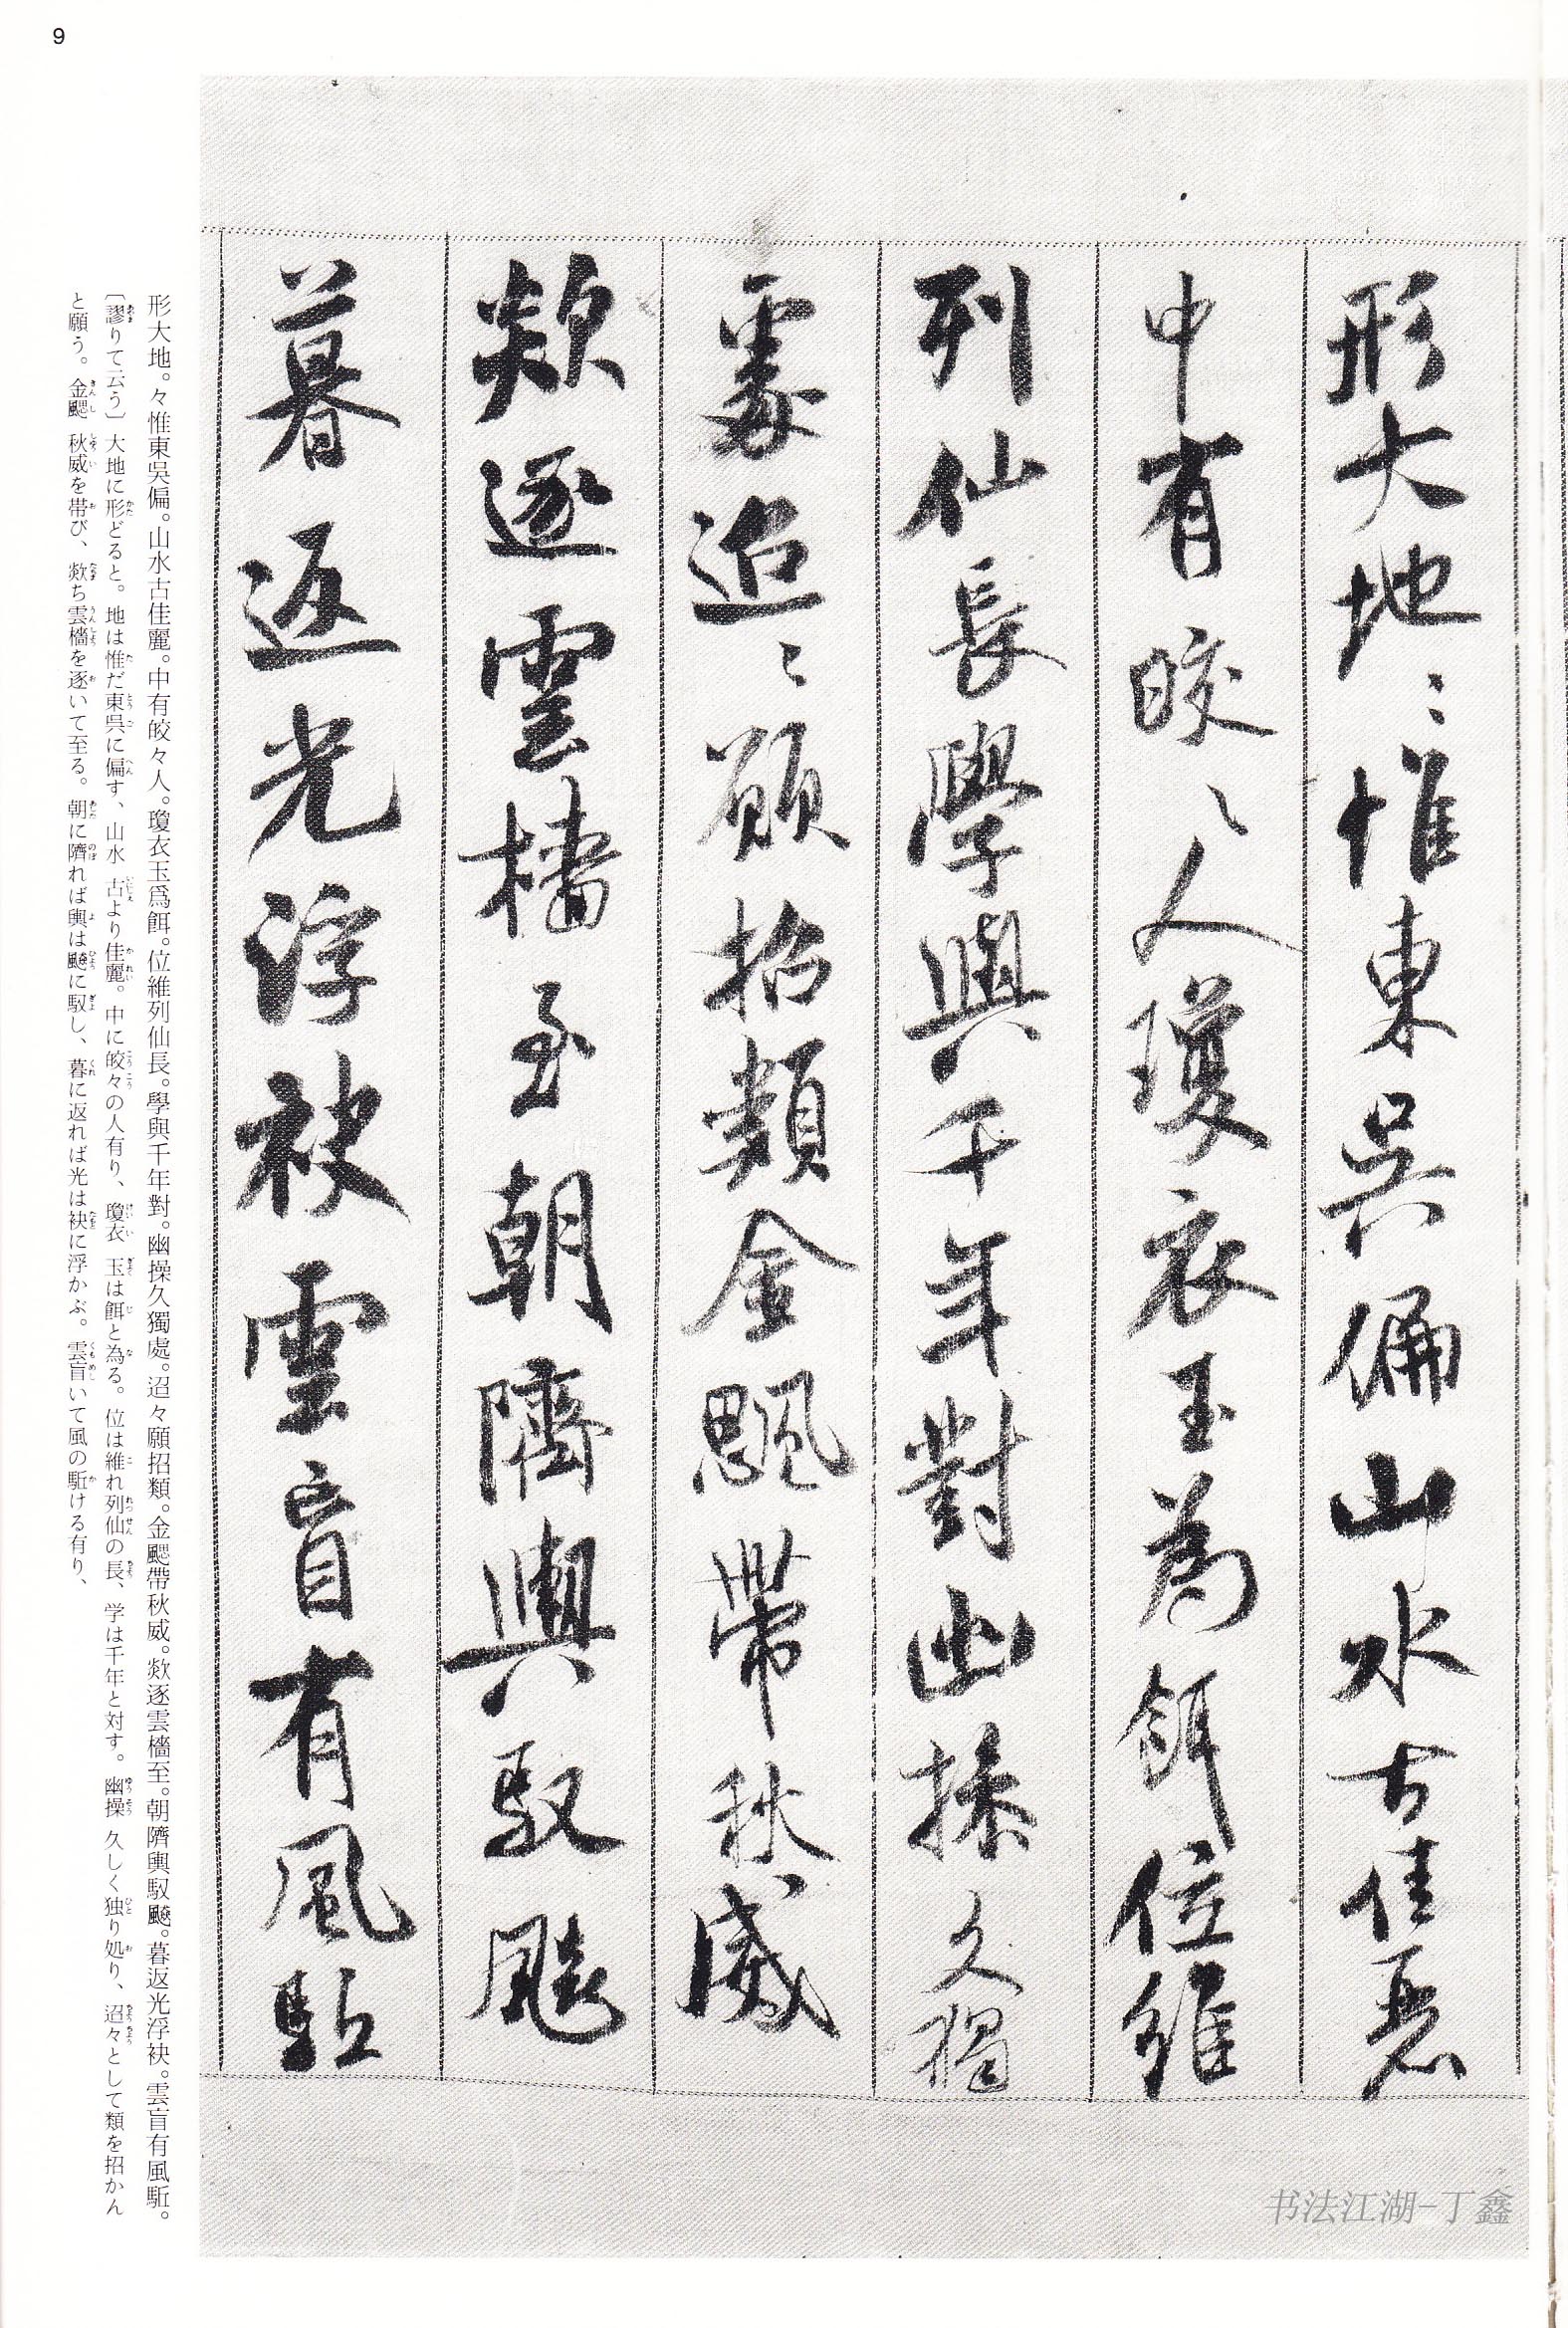 形大地々惟東吳偏山水古佳麗
中有皎々人瓊衣玉為餌位維
列仙長學與千年對幽操久獨
處迢々願招類金飔帶秋威
欻逐雲檣至朝隮輿馭飈
暮返光浮袂雲盲有風駈
形大地。々惟東吳偏。山水古佳麗。中有皎々人。瓊衣玉爲餌。位維列仙長。學與千年對。幽操久獨處。迢々願招類。金飔帶秋威。欻逐雲檣至。朝隮輿馭飈。暮返光浮袂。雲盲有風駈。
〔謬りて云う〕大地に形どると。地は惟だ東呉に偏す、山水 古より佳麗。中に皎々の人有り、瓊衣 玉は餌と為る。位は維れ列仙の長、学は千年と対す。幽操 久しく独り処り、迢々として類を招かん
と願う。金飔 秋威を帯び、欻ち雲檣を逐いて至る。朝に隮れば輿は飈に馭し、暮に返れば光は袂に浮かぶ。雲盲いて風の駈ける有り、
9
书法江湖-丁鑫